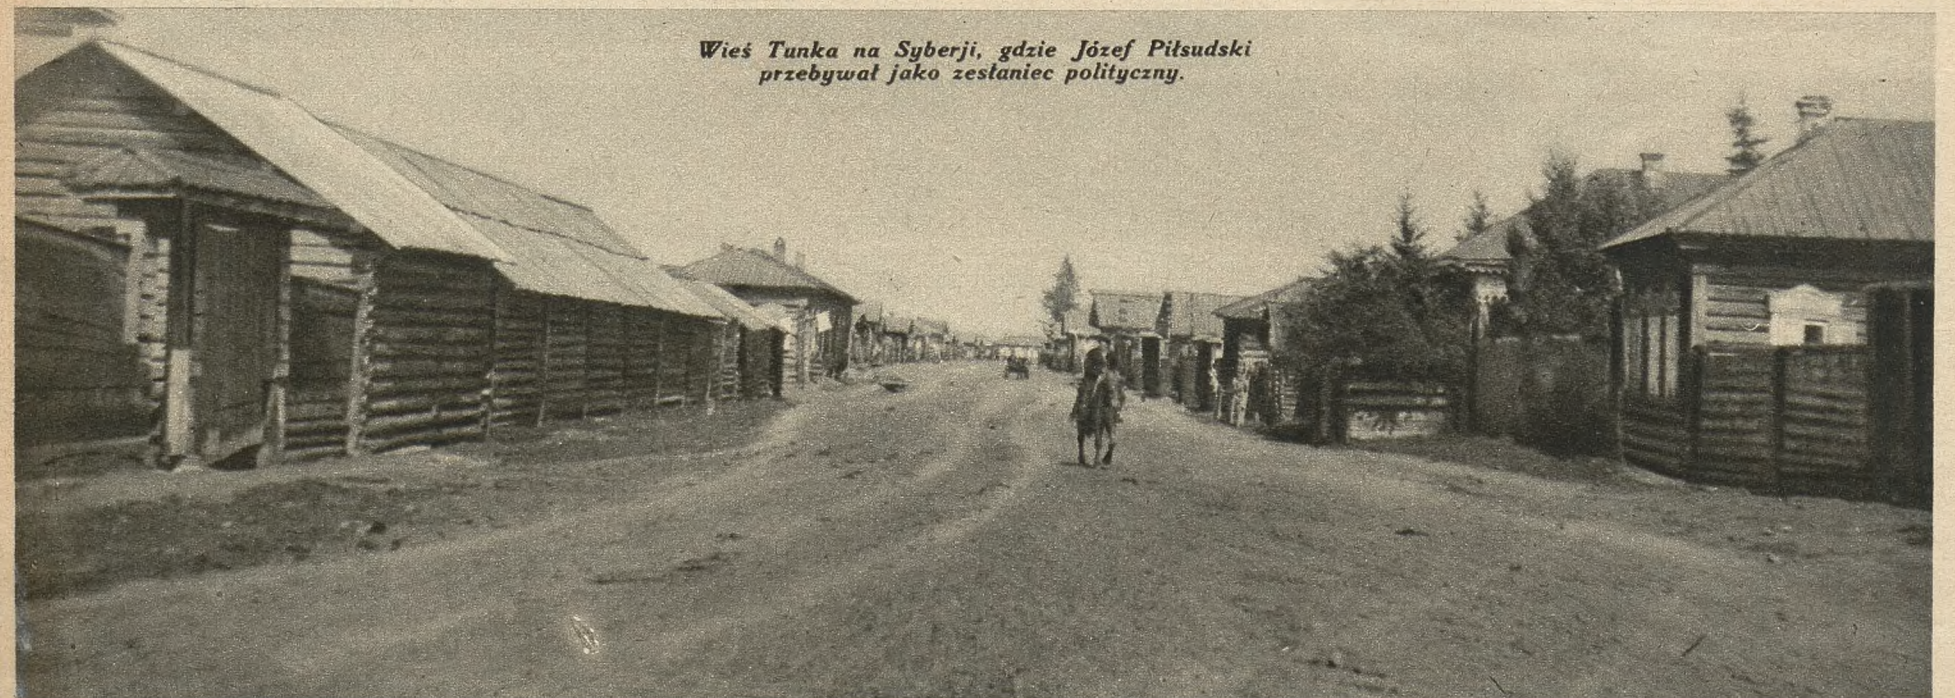 Wieś Tunka na Syberji, gdzie Józef Piłsudski
przebywał jako zesłaniec polityczny.